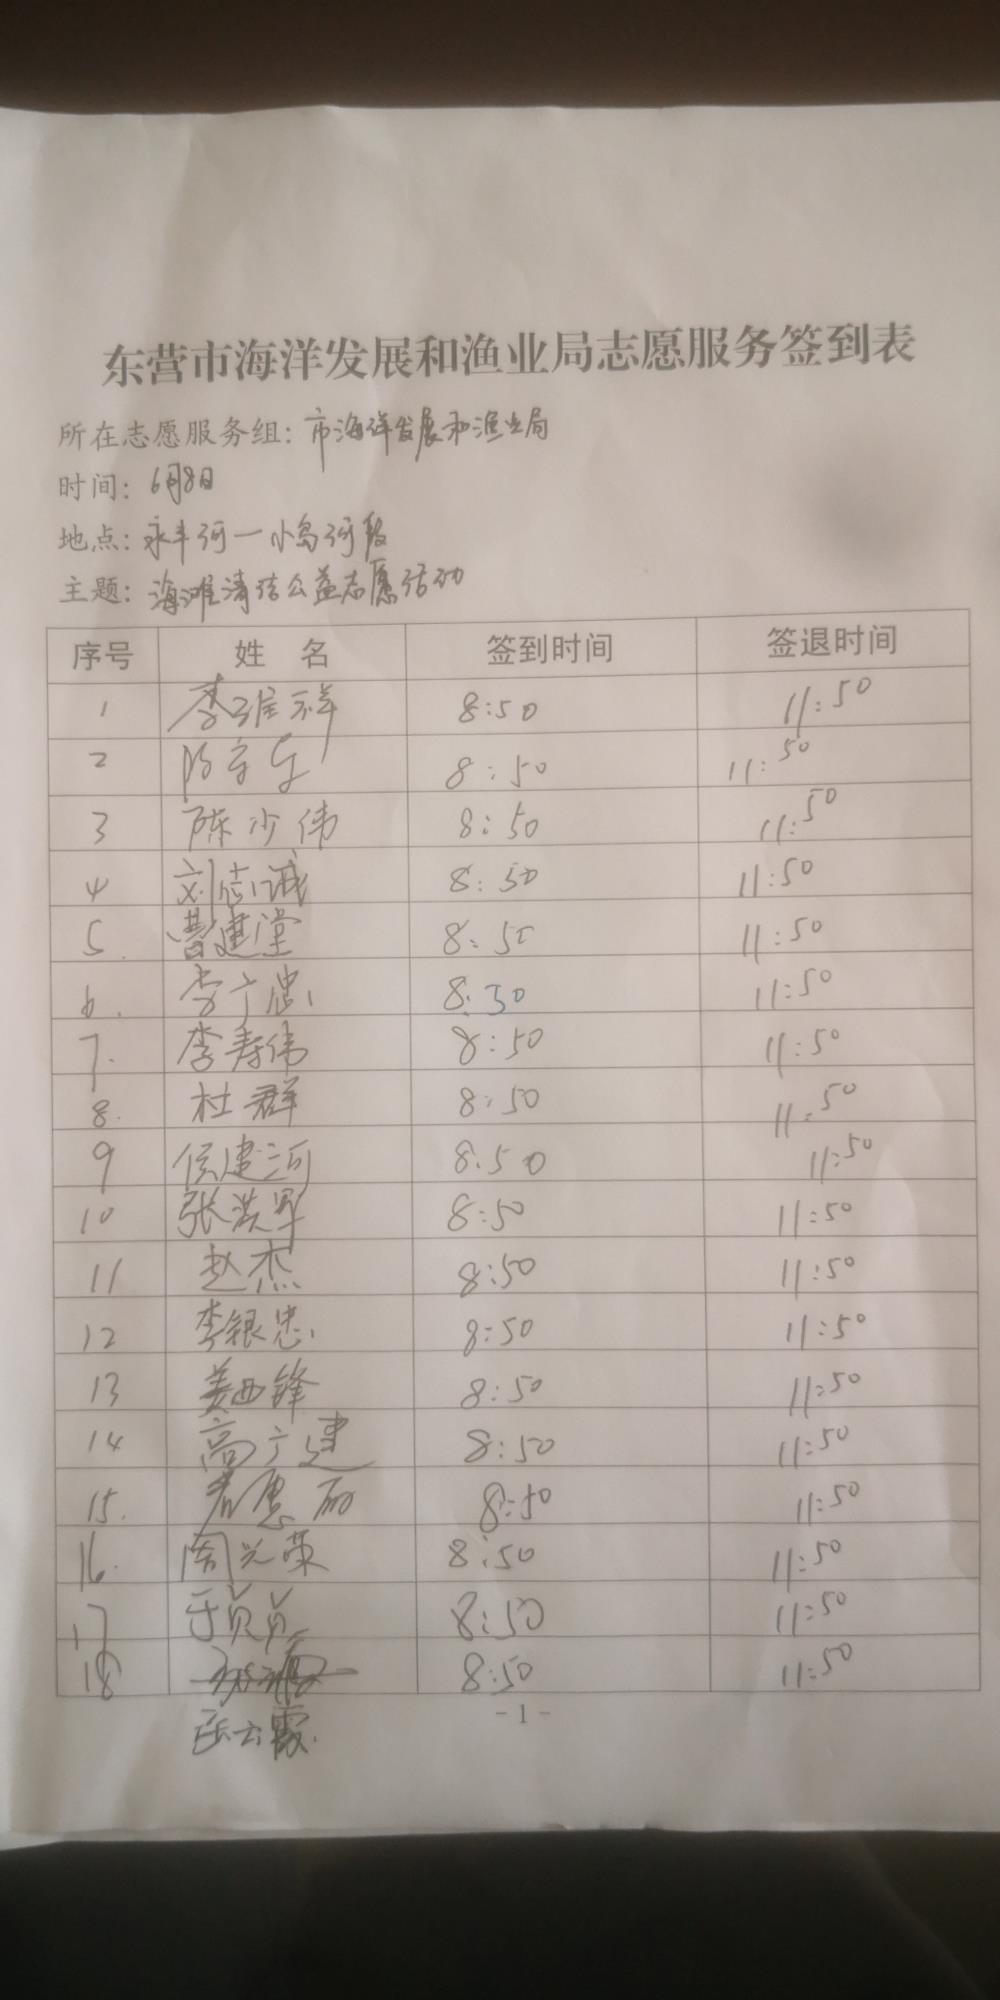 东营市海洋发展和渔业局志愿服务签到表
所在志愿服务组：市海洋发展和渔业局
时间：6月8日
地点：永丰河一小岛河段
主题：海滩清洁公益志愿活动
序号 姓 名 签到时间 签退时间
1 李维祥 8:50 11:50
2 8:50 11:50
3 陈少伟 8:50 11:50
4 刘志诚 8:50 11:50
5. 曹建堂 8:50 11:50
6. 李广忠 8:50 11:50
7. 李寿伟 8:50 11:50
8. 杜群 8:50 11:50
9 侯建河 8:50 11:50
10 张洪军 8:50 11:50
11 赵杰 8:50 11:50
12 李银忠 8:50 11:50
13 姜西锋 8:50 11:50
14 高广建 8:50 11:50
15. 8:50 11:50
16. 周光荣 8:50 11:50
17 于贞贞 8:50 11:50
18 8:50 11:50
- 1 -